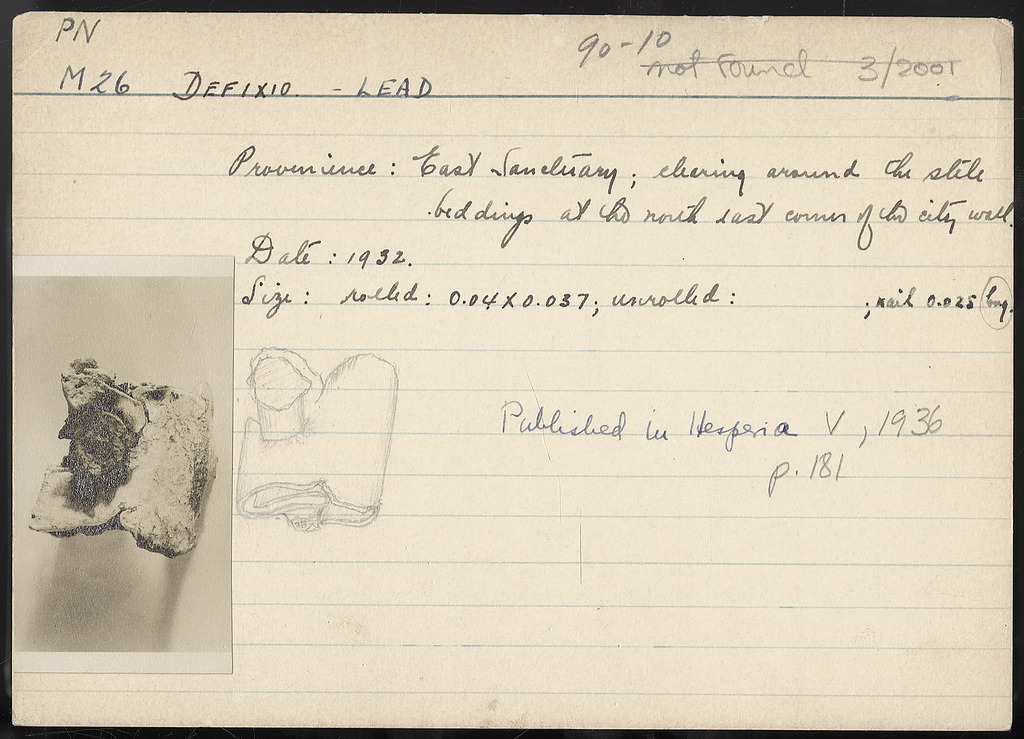 PN
90-10
not found 3/2001
M 26 DEFIXIO. - LEAD
Provenience : East Sanctuary ; clearing around the stele
beddings at the north east corner of the city wall.
Date : 1932.
Size : rolled : 0.04 X 0.037 ; unrolled : ; nail 0.025 long.
Published in Hesperia V, 1936
p. 181